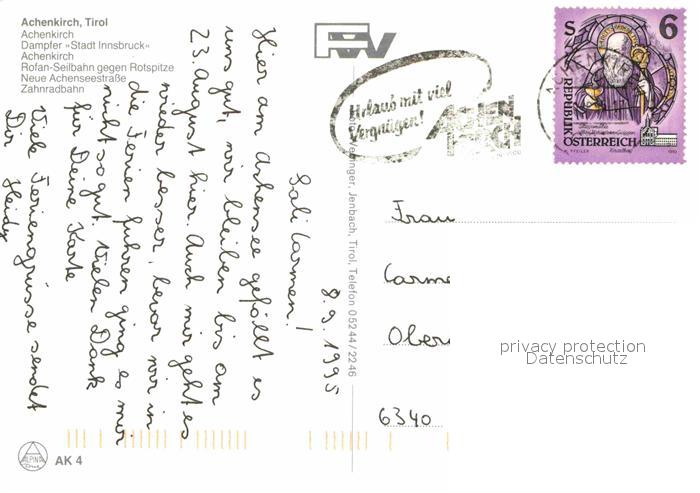 Achenkirch, Tirol
Achenkirch
Dampfer »Stadt Innsbruck«
Achenkirch
Rofan-Seilbahn gegen Rotspitze
Neue Achenseestraße
Zahnradbahn
8.9.1995
Sali Carmen!
Hier am Achensee gefällt es
uns gut, wir bleiben bis am
23. August hier. Auch mir geht es
wieder besser, bevor wir in
die Ferien fuhren ging es mir
nicht so gut. Vielen Dank
für Deine Karte
Viele Feriengrüsse sendet
Dir Heidy
ALPINA
AK 4
Jenbach, Tirol, Telefon 05244/2246
Urlaub mit viel
Vergnügen!
ACHEN
KIRCH
S 6
REPUBLIK
ÖSTERREICH
Frau
Carme
Ober
6340
privacy protection
Datenschutz